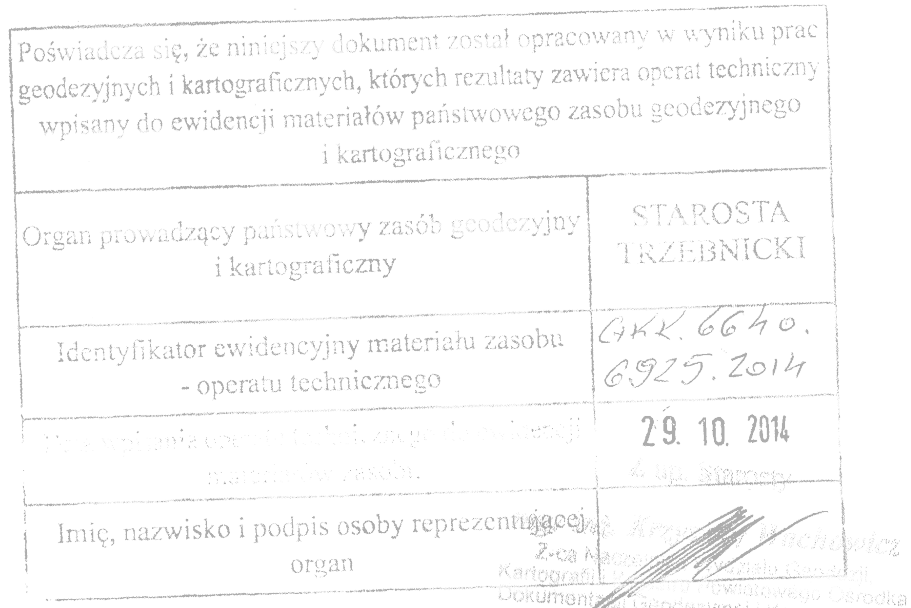 Poświadcza się, że niniejszy dokument został opracowany w wyniku prac
geodezyjnych i kartograficznych, których rezultaty zawiera operat techniczny
wpisany do ewidencji materiałów państwowego zasobu geodezyjnego
i kartograficznego
Organ prowadzący państwowy zasób geodezyjny
i kartograficzny
STAROSTA
TRZEBNICKI
Identyfikator ewidencyjny materiału zasobu
- operatu technicznego
GKK. 6640.
6925. 2014
materiałów zasobu
29. 10. 2014
Z up. Starosty
Imię, nazwisko i podpis osoby reprezentującej
organ
Z-ca